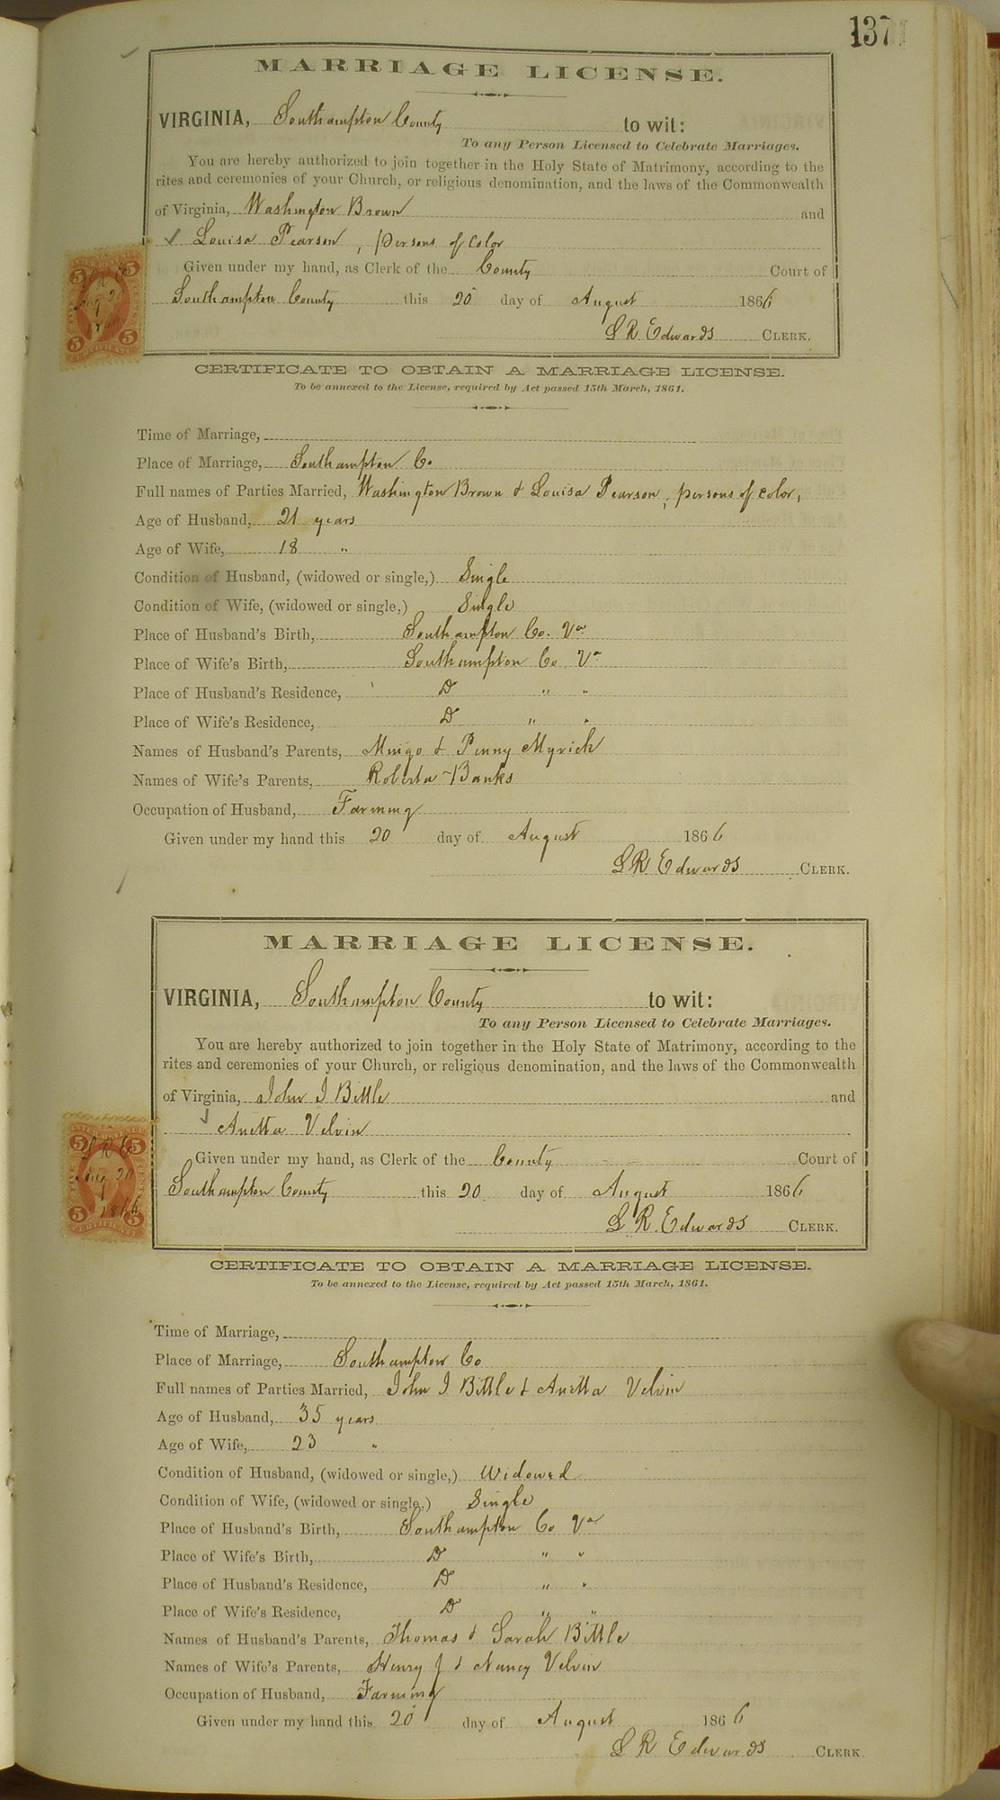 137
MARRIAGE LICENSE.
VIRGINIA, Southampton County to wit:
To any Person Licensed to Celebrate Marriages.
You are hereby authorized to join together in the Holy State of Matrimony, according to the
rites and ceremonies of your Church, or religious denomination, and the laws of the Commonwealth
of Virginia, Washington Brown and
Louisa Pearson, persons of color
Given under my hand, as Clerk of the County Court of
Southampton County this 20 day of August 1866
L R Edwards CLERK.
CERTIFICATE TO OBTAIN A MARRIAGE LICENSE.
To be annexed to the License, required by Act passed 15th March, 1861.
Time of Marriage,
Place of Marriage, Southampton Co
Full names of Parties Married, Washington Brown & Louisa Pearson, persons of color,
Age of Husband, 21 years
Age of Wife, 18 "
Condition of Husband, (widowed or single,) Single
Condition of Wife, (widowed or single,) Single
Place of Husband's Birth, Southampton Co. Va
Place of Wife's Birth, Southampton Co Va
Place of Husband's Residence, D " "
Place of Wife's Residence, D " "
Names of Husband's Parents, Mingo & Penny Myrick
Names of Wife's Parents, Roberta Banks
Occupation of Husband, Farming
Given under my hand this 20 day of August 1866
L R Edwards CLERK.
MARRIAGE LICENSE.
VIRGINIA, Southampton County to wit:
To any Person Licensed to Celebrate Marriages.
You are hereby authorized to join together in the Holy State of Matrimony, according to the
rites and ceremonies of your Church, or religious denomination, and the laws of the Commonwealth
of Virginia, John J Bittle and
Anetta Velvin
Given under my hand, as Clerk of the County Court of
Southampton County this 20 day of August 1866
L R Edwards CLERK.
5 L R E 5
Aug 20
1866
5 CERTIFICATE 5
CERTIFICATE TO OBTAIN A MARRIAGE LICENSE.
To be annexed to the License, required by Act passed 15th March, 1861.
Time of Marriage,
Place of Marriage, Southampton Co
Full names of Parties Married, John J Bittle & Anetta Velvin
Age of Husband, 35 years
Age of Wife, 23 "
Condition of Husband, (widowed or single,) Widowed
Condition of Wife, (widowed or single,) Single
Place of Husband's Birth, Southampton Co Va
Place of Wife's Birth, D " "
Place of Husband's Residence, D " "
Place of Wife's Residence, D " "
Names of Husband's Parents, Thomas & Sarah Bittle
Names of Wife's Parents, Henry J & Nancy Velvin
Occupation of Husband, Farming
Given under my hand this 20 day of August 1866
L R Edwards CLERK.